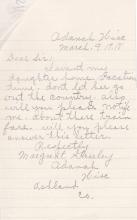 Odanah Wisc
March. 9 1918
Dear Sir;
I want my
daughter home. Vacation
time. don't let her go
out the country. also
will you please notify
me. about there train
fare. will you please
answer this letter.
Respectly
Margaret
Odanah
Wisc
Ashland
Co.